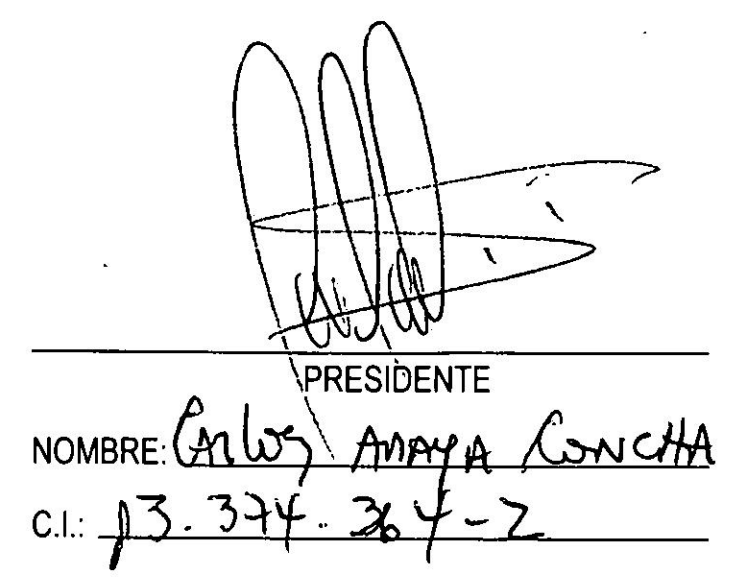 PRESIDENTE
NOMBRE: CARlos ARAYA CONCHA
C.I.: 13.374.364-2